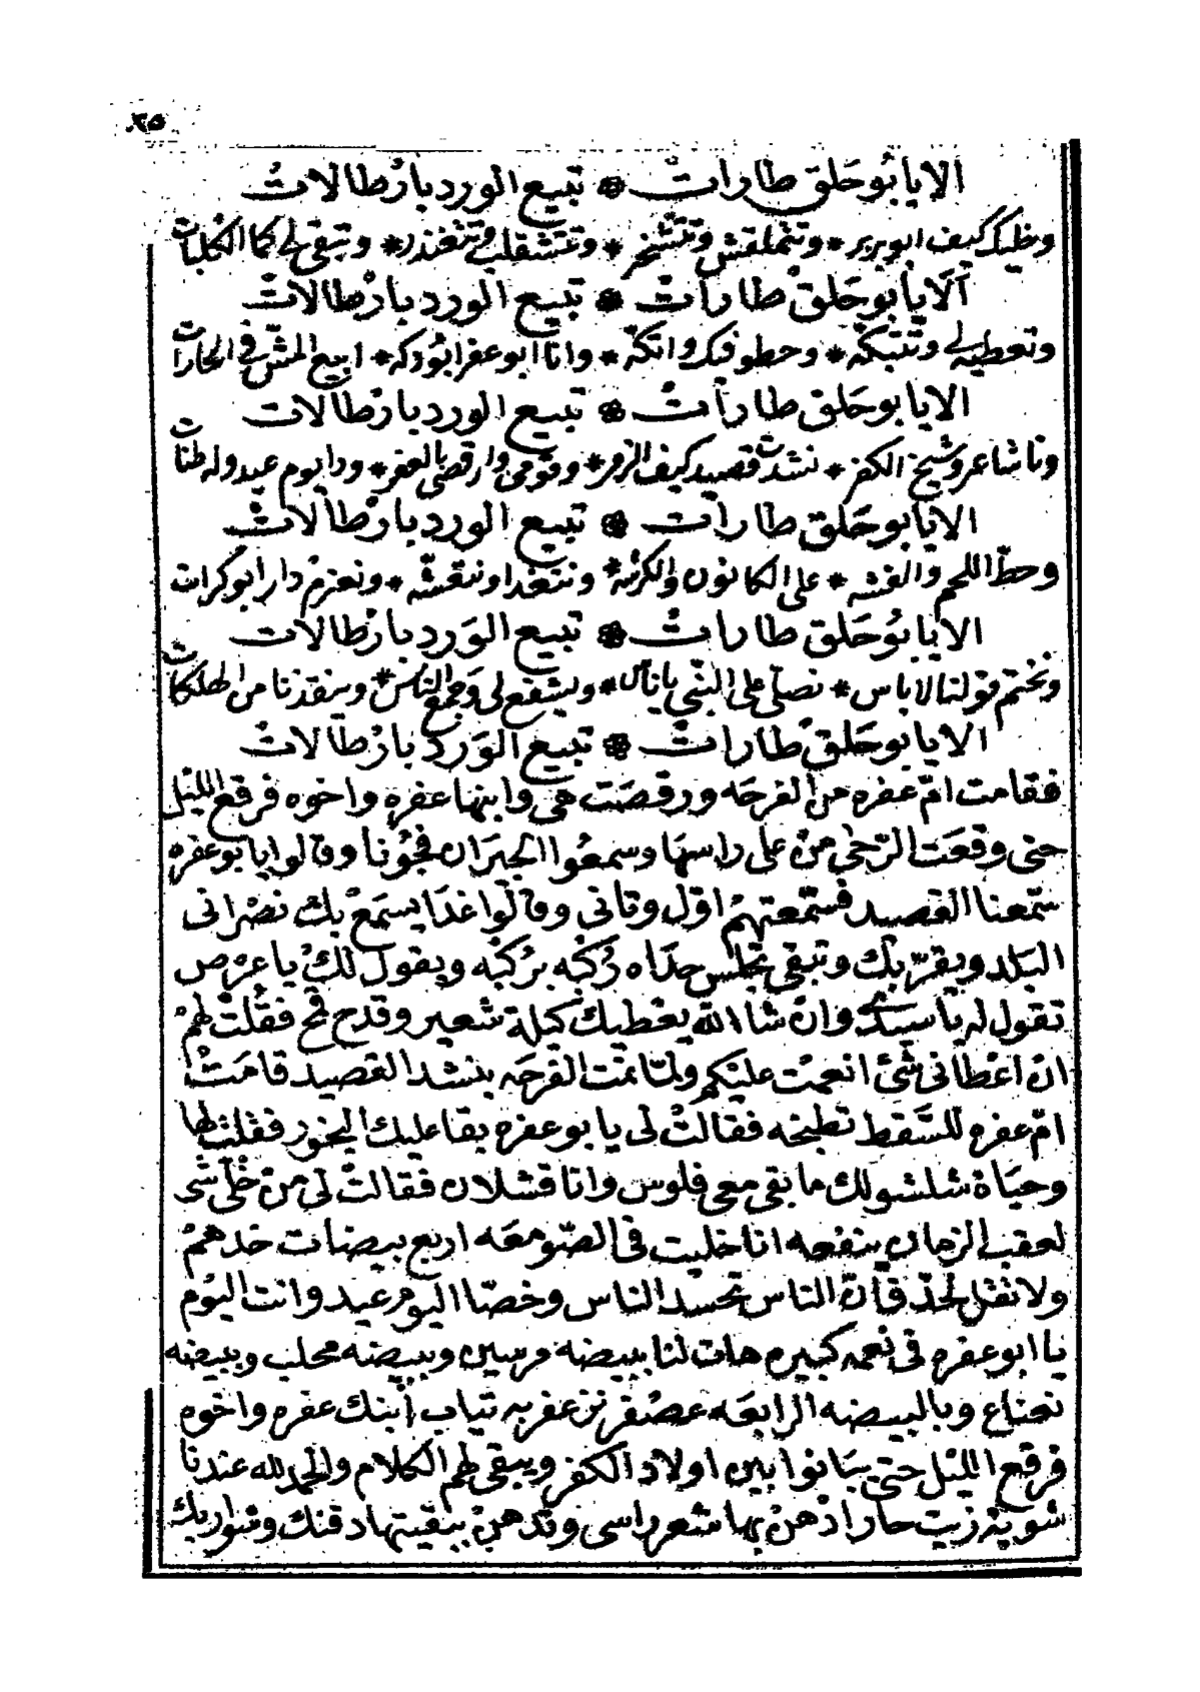 ٢٥
الايا بو حلق طارات * تبيع الورد بارطالات
وخليك كيف ابو برير * وتتملقش وتتشخر * وتتشقلب وتتغندر * وتبقى لي كما الكلبات
الايا بو حلق طارات * تبيع الورد بارطالات
وتعطيه لي وتتبكه * وحطو فك وانكه * وانا ابو عفر ابو دكه * ابيع المش في الحارات
الايا بو حلق طارات * تبيع الورد بارطالات
ونا شاعر وشيخ الكفر * نشدت قصيد كيف الزمر * وقومى وارقصى بالعفر * ودا يوم عيد وله طنات
الايا بو حلق طارات * تبيع الورد بارطالات
وحط اللحم والفشه * على الكانون والكرشه * ونتغدا ونتقشه * ونعزم دار ابو كرات
الايا بو حلق طارات * تبيع الورد بارطالات
ونختم قولنا لا باس * نصلى على النبي يا ناس * ويشفع لى وجمع الناس * وينقذنا من الهلكات
الايا بو حلق طارات * تبيع الورد بارطالات
فقامت امّ عفره من الفرحه ورقصت هى وابنها عفره واخوه فرقع الليل
حتى وقعت الرّخى من على راسها وسمعوا الجيران فجونا وقالوا يا بو عفره
سمّعنا القصيد فسمّعتهم اوّل وتانى وقالوا غدا يسمع بك نصرانى
البلد ويقرّبك وتبقى تجلس حداه ركبه بركبه ويقول لك يا عرص
تقول له يا سيدى وان شا الله يعطيك كيلة شعير وقدح قمح فقلت لهم
ان اعطانى شئ انعمت عليكم ولما تمت الفرحه بنشد القصيد قامت
امّ عفره للسّقط تطبخه فقالت لى يا بو عفره بقا عليك البخور فقلت لها
وحياة شلشولك ما بقى معى فلوس وانا قشلان فقالت لى من خلى شى
لعقب الزمان ينفعه انا خليت فى الصّومعه اربع بيضات خدهم
ولا تقل لحدّ فان الناس تحسد الناس وخصّا اليوم عيد وانت اليوم
نا ابو عفره فى نعمه كبيره هات لنا ببيضه مرسين وببيضه محلب وببيضه
نعناع وبالبيضه الرابعه عصفر نزعفر به تياب ابنك عفره واخوه
فرقع الليل حتى يبانوا بين اولاد الكفر ويبقى لهم الكلام والحمد لله عندنا
شوية زيت حار ادهن بها شعر راسى وتدهن ببقيتها دقنك وشواربك